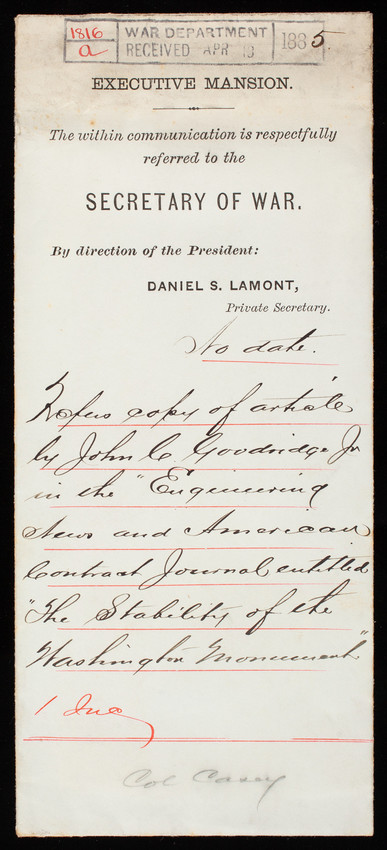 1816
a
WAR DEPARTMENT
RECEIVED APR 13
1885.
EXECUTIVE MANSION.
The within communication is respectfully
referred to the
SECRETARY OF WAR.
By direction of the President:
DANIEL S. LAMONT,
Private Secretary.
No date.
Refers copy of article
by John C. Goodridge Jr
in the "Engineering
News and American
Contract Journal entitled
"The Stability of the
Washington Monument"
1 Inc
Col Casey